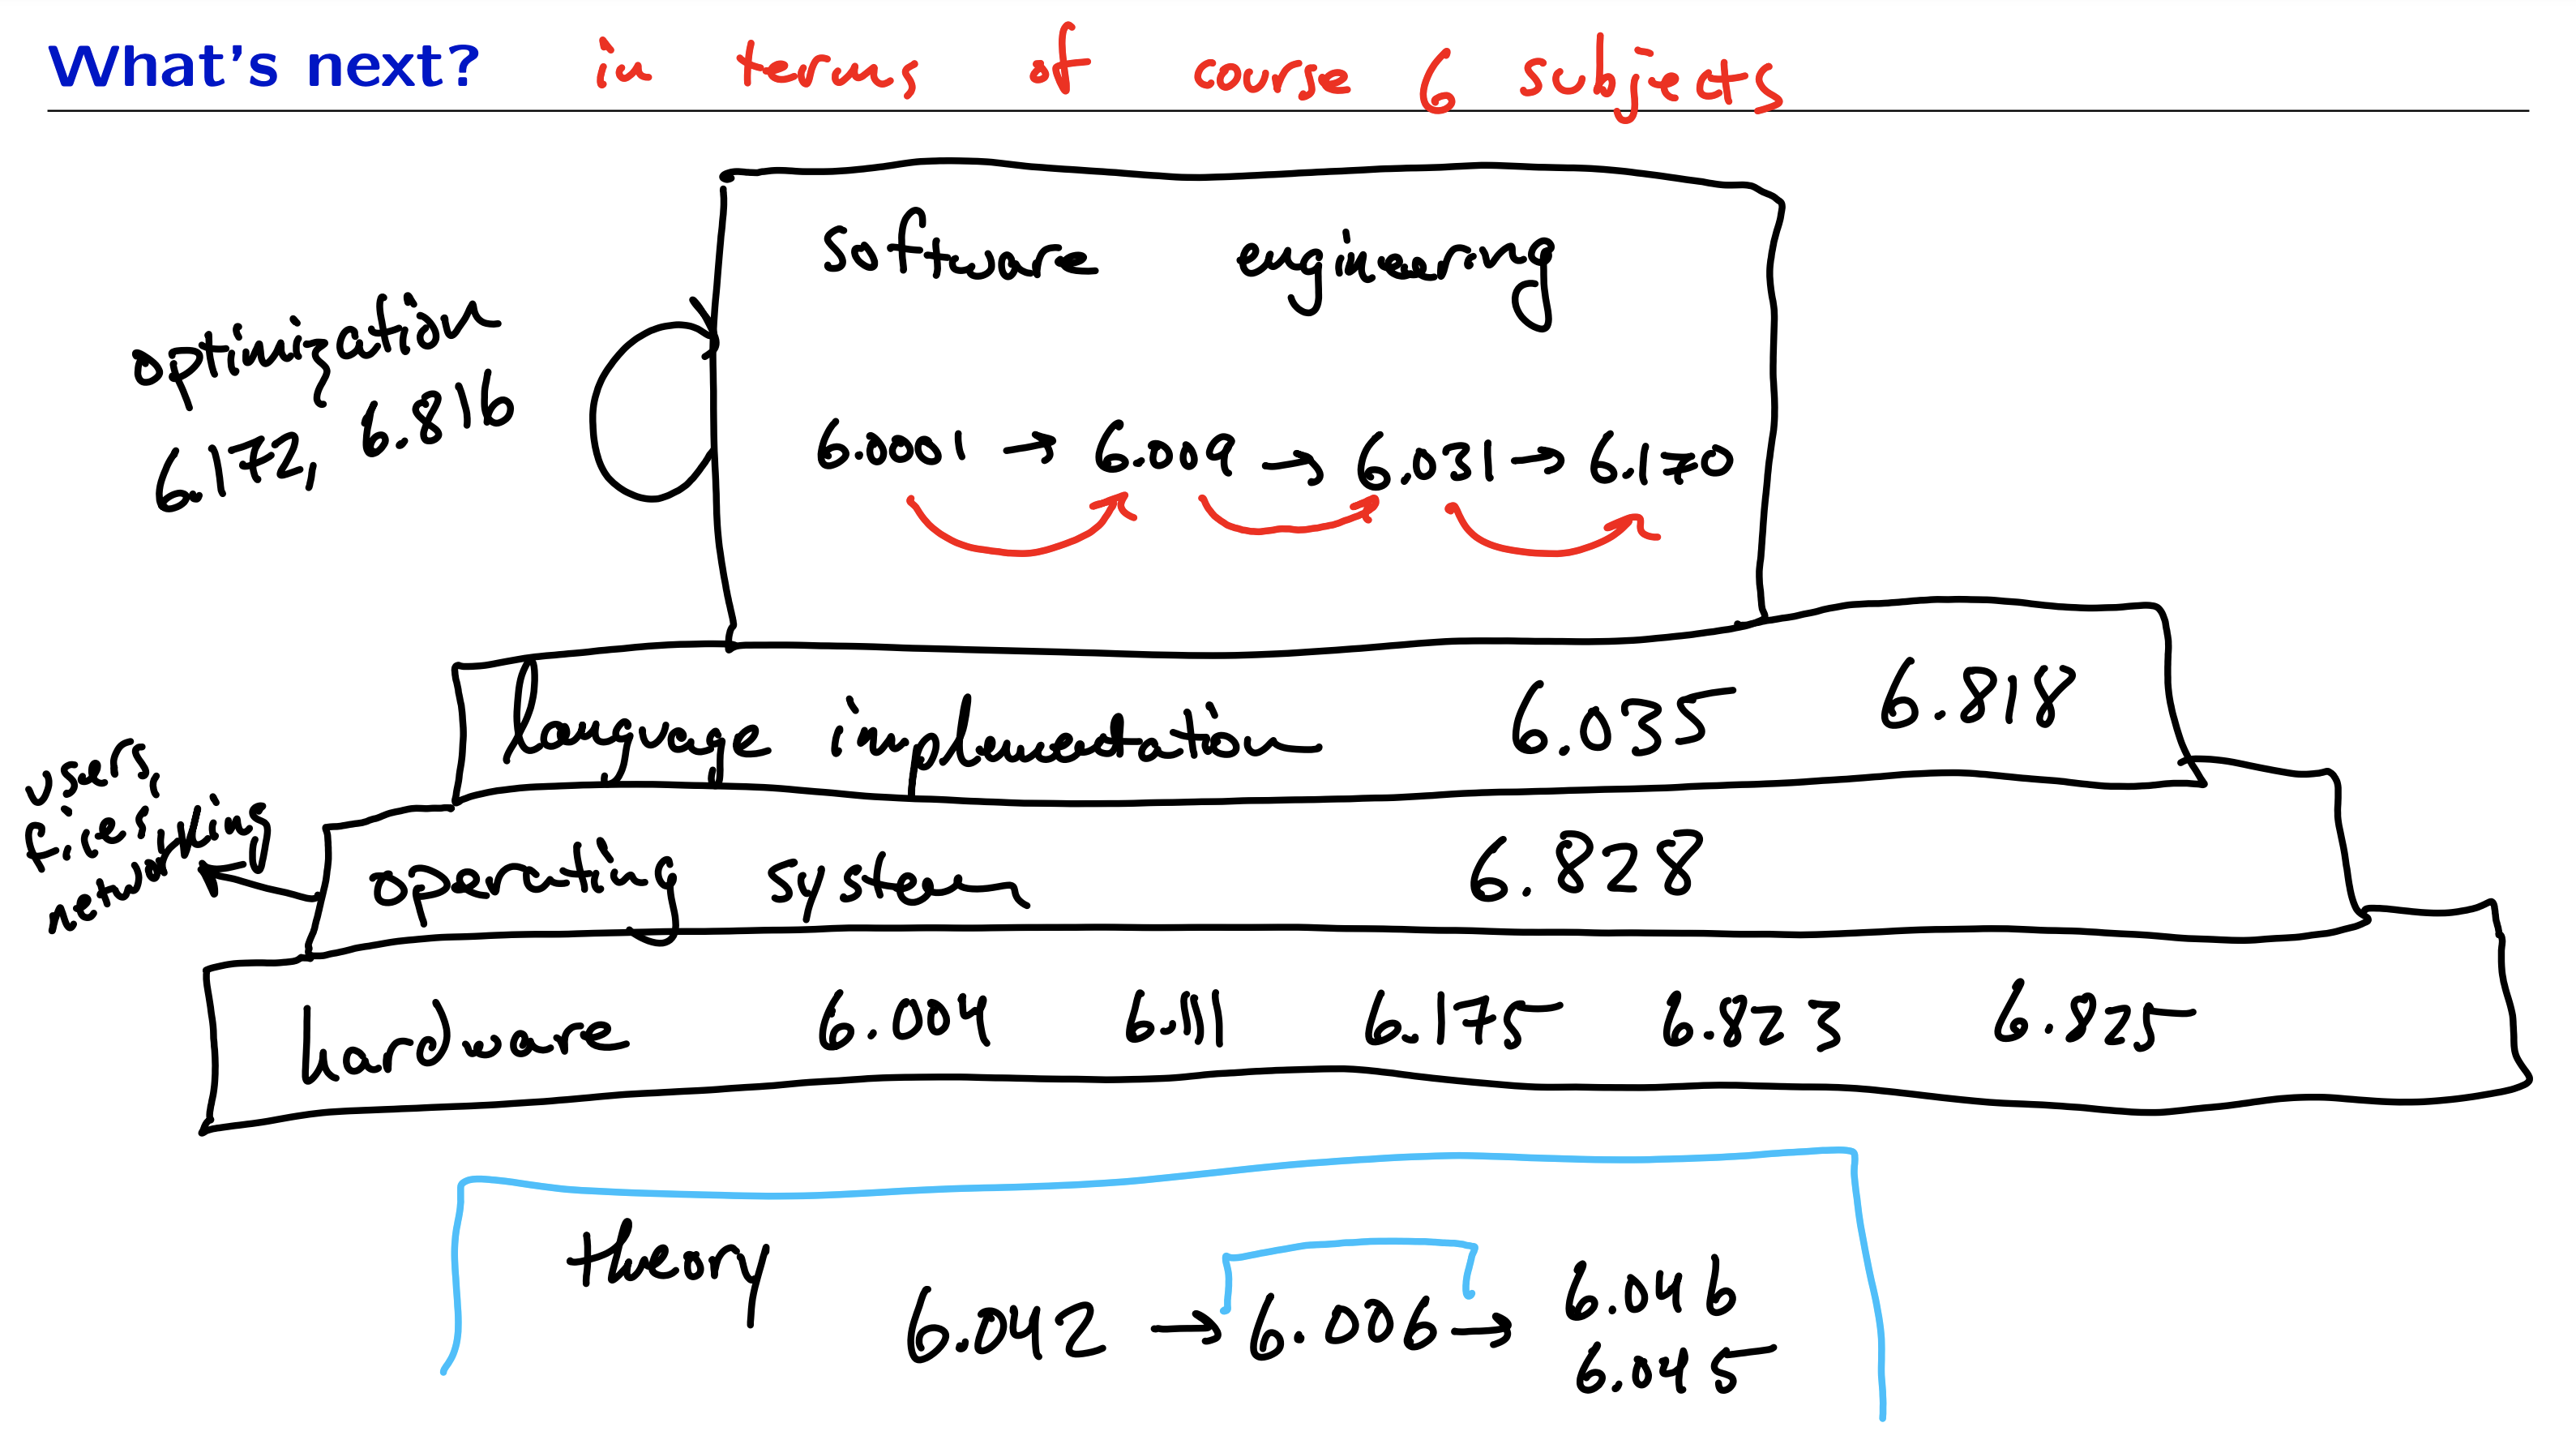 What's next? in terms of course 6 subjects
software engineering
optimization
6.172, 6.816
6.0001 → 6.009 → 6.031 → 6.170
language implementation 6.035 6.818
users,
files,
networking
operating system 6.828
hardware 6.004 6.111 6.175 6.823 6.825
theory
6.042 → 6.006 → 6.046
6.045